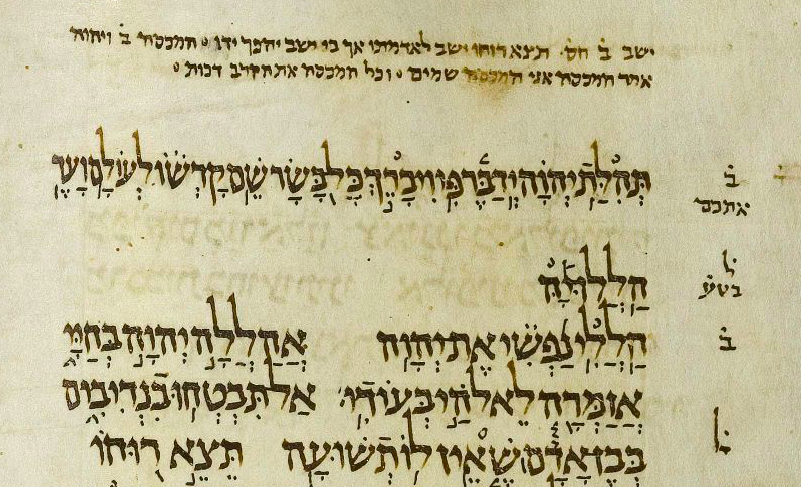 ישב ב֗ חס֗ תצא רוחו ישב לאדמתו אך בי ישב יהפך ידו ׃ המכסה ב֗ ויהוה
אמר המכסה אני המכסה שמים ׃ וכל המכסה את הקרב דכות ׃
תְּהִלַּת יְהוָה יְדַבֶּר פִּי וִיבָרֵךְ כָּל בָּשָׂר שֵׁם קָדְשׁוֹ לְעוֹלָם וָעֶד
ב֗
הַלְלוּיָהּ
ל֗
הַלְלִי נַפְשִׁי אֶת יְהוָה אֲהַלְלָה יְהוָה בְּחַיָּי
ב֗
אֲזַמְּרָה לֵאלֹהַי בְּעוֹדִי אַל תִּבְטְחוּ בִנְדִיבִים
בְּבֶן אָדָם שֶׁאֵין לוֹ תְשׁוּעָה תֵּצֵא רוּחוֹ
ל֗